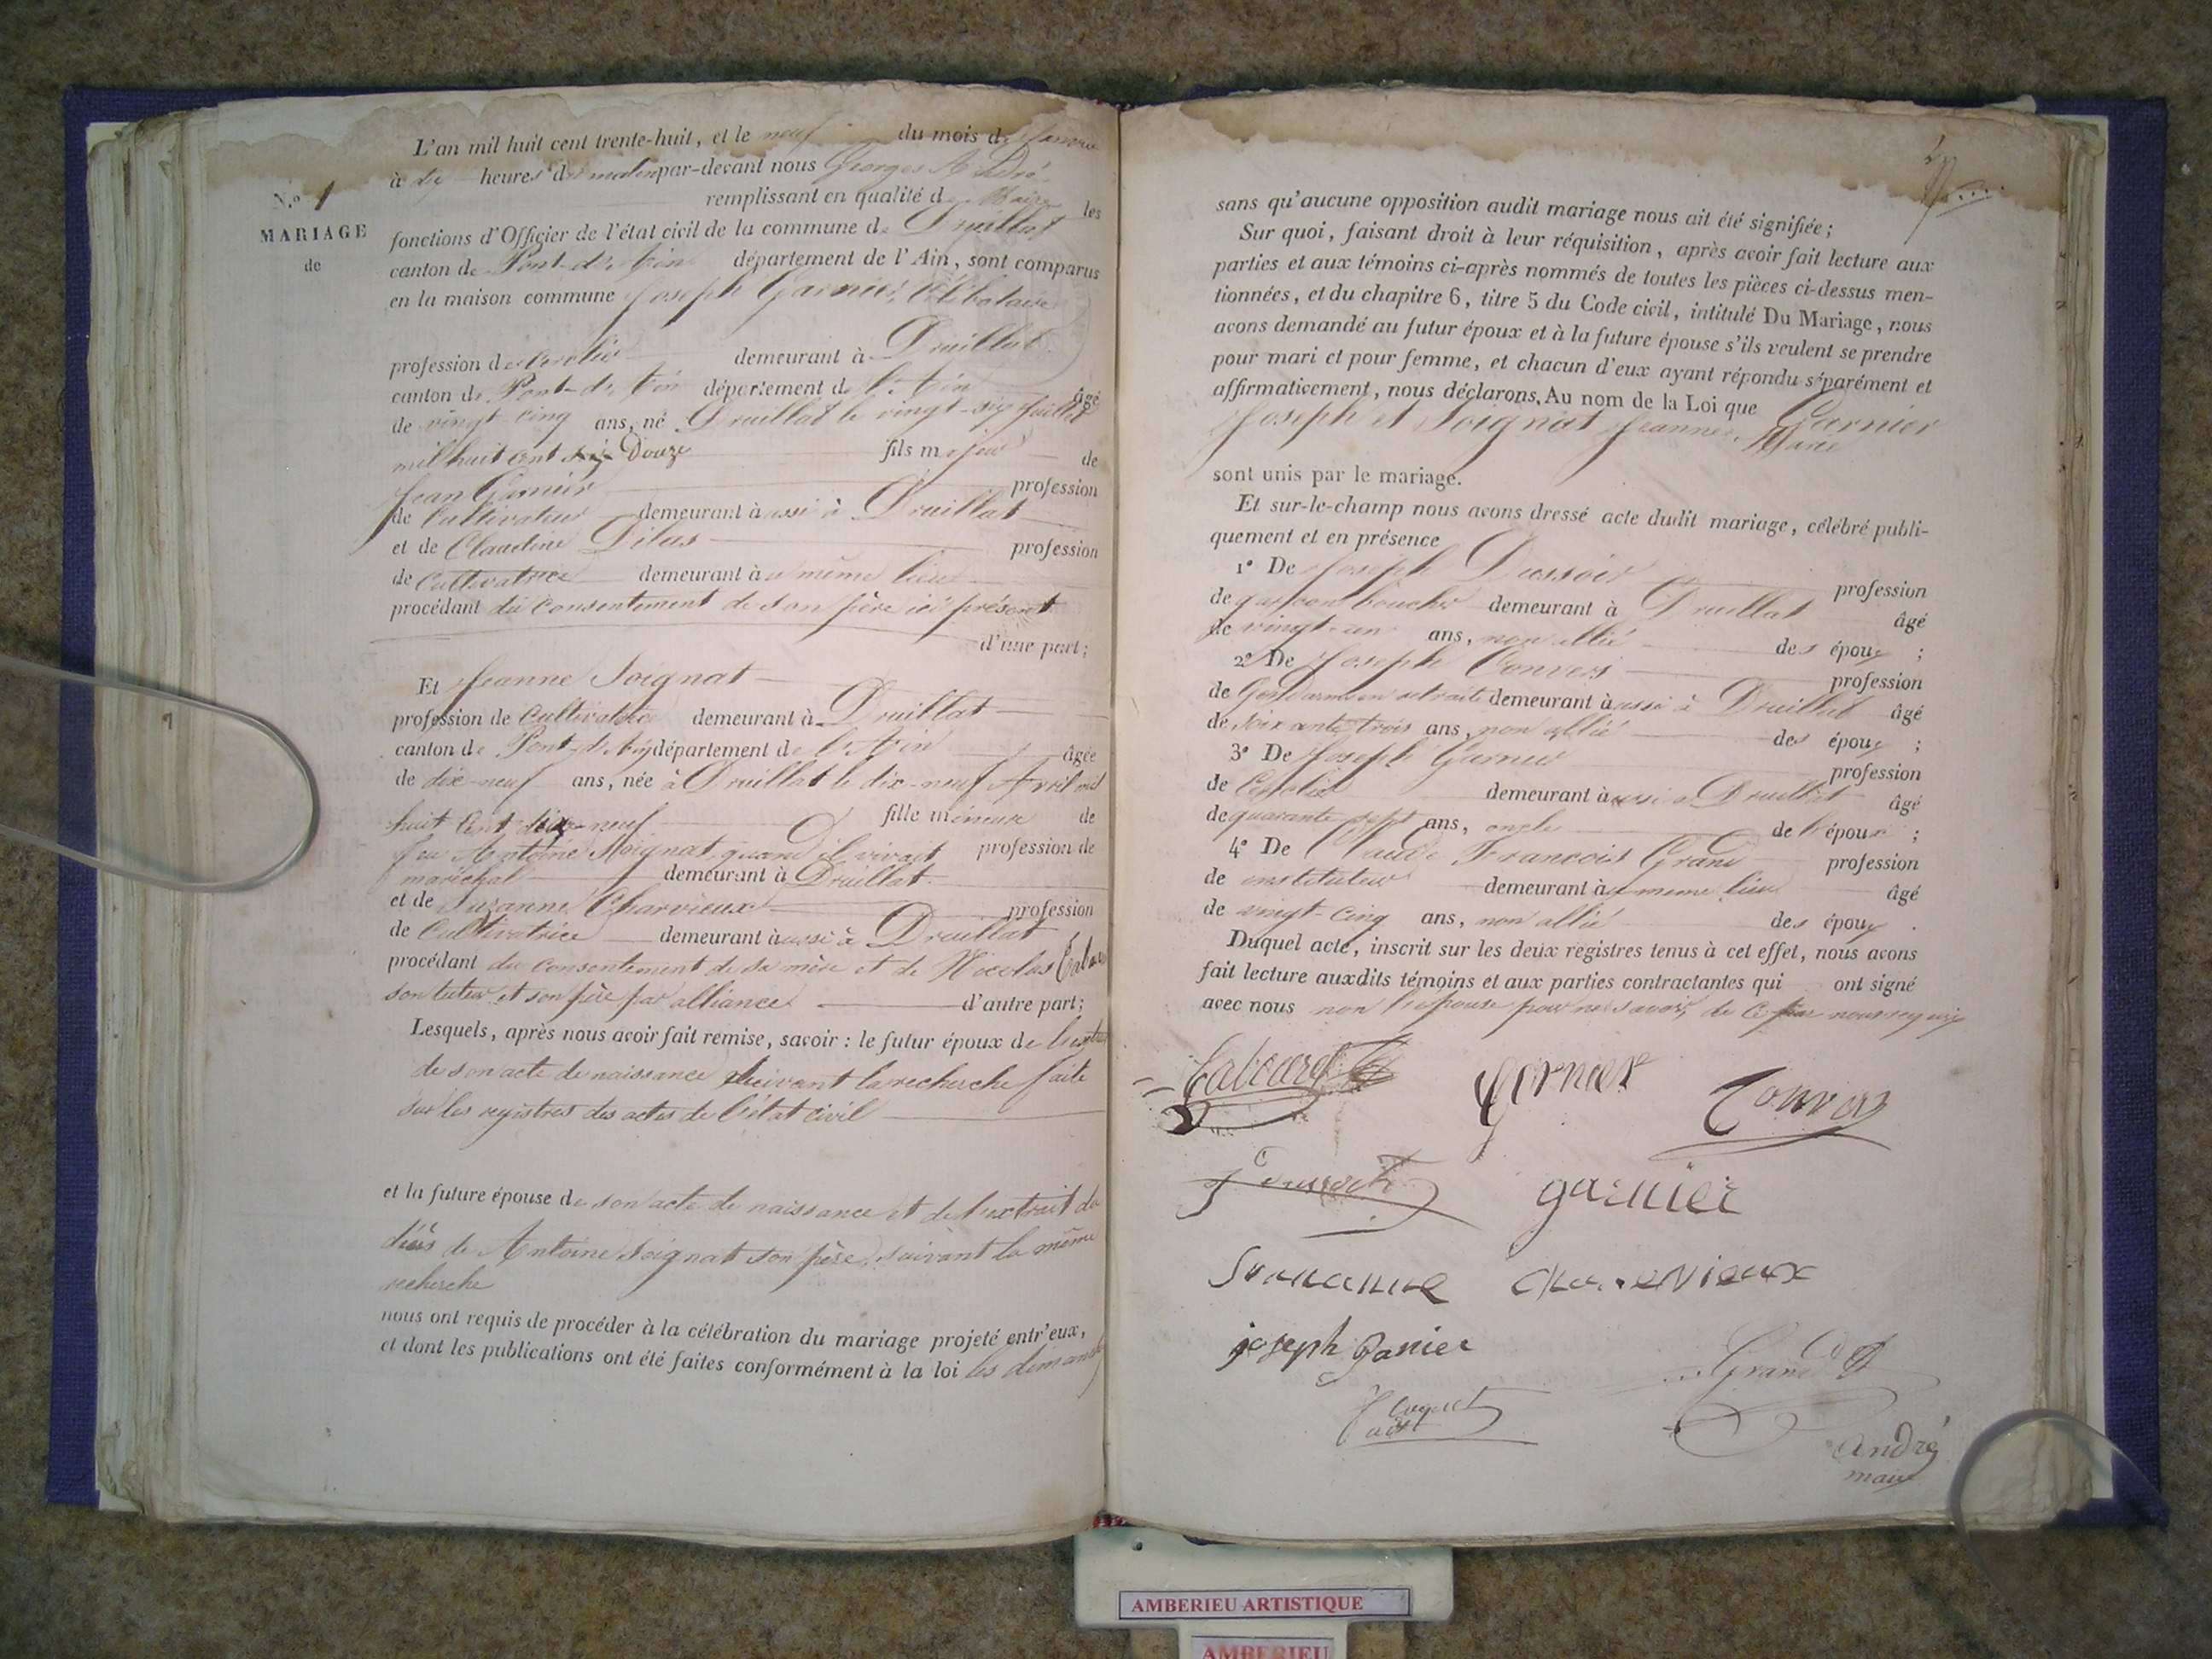 L'an mil huit cent trente-huit, et le neuf du mois de Janvier
à dix heures du matin par-devant nous Georges André
N.° 1
remplissant en qualité de Maire les
MARIAGE
de
fonctions d'Officier de l'état civil de la commune de Druillat
canton de Pont-d'Ain département de l'Ain, sont comparus
en la maison commune Joseph Garnier, Célibataire
profession de demeurant à Druillat
canton de Pont-d'Ain département de l'Ain âgé
de vingt cinq ans, né Druillat le vingt-six Juillet
mil huit cent Douze fils majeur de
Jean Garnier profession
de Cultivateur demeurant aussi à Druillat
et de Claudine profession
de Cultivatrice demeurant au même lieu
procédant du consentement de son père ici présent
d'une part;
Et Jeanne Soignat
profession de Cultivatrice demeurant à Druillat
canton de Pont-d'Ain département de l'Ain âgée
de dix-neuf ans, née à Druillat le dix-neuf Avril mil
huit cent dix-neuf fille mineure de
feu Antoine Soignat quand il vivait profession de
maréchal demeurant à Druillat
et de Suzanne Charvieux profession
de Cultivatrice demeurant aussi à Druillat
procédant du consentement de sa mère et de Nicolas
son tuteur et son père par alliance d'autre part;
Lesquels, après nous avoir fait remise, savoir : le futur époux de l'extrait
de son acte de naissance suivant la recherche faite
sur les registres des actes de l'état civil
et la future épouse de son acte de naissance et de l'extrait de
décès de Antoine Soignat son père, suivant la même
recherche
nous ont requis de procéder à la célébration du mariage projeté entr'eux,
et dont les publications ont été faites conformément à la loi les dimanches
sans qu'aucune opposition audit mariage nous ait été signifiée;
Sur quoi, faisant droit à leur réquisition, après avoir fait lecture aux
parties et aux témoins ci-après nommés de toutes les pièces ci-dessus men-
tionnées, et du chapitre 6, titre 5 du Code civil, intitulé Du Mariage, nous
avons demandé au futur époux et à la future épouse s'ils veulent se prendre
pour mari et pour femme, et chacun d'eux ayant répondu séparément et
affirmativement, nous déclarons, Au nom de la Loi que Garnier
Joseph et Soignat Jeanne Marie
sont unis par le mariage.
Et sur-le-champ nous avons dressé acte dudit mariage, célébré publi-
quement et en présence
1° De Joseph profession
de garçon boucher demeurant à Druillat âgé
de vingt-un ans, non allié des époux ;
2° De Joseph Convers profession
de Gendarme en retraite demeurant aussi à Druillat âgé
de soixante trois ans, non allié des époux ;
3° De Joseph Garnier profession
de demeurant aussi à Druillat âgé
de quarante sept ans, oncle de l'époux ;
4° De Claude François Grand profession
de instituteur demeurant au même lieu âgé
de vingt-cinq ans, non allié des époux .
Duquel acte, inscrit sur les deux registres tenus à cet effet, nous avons
fait lecture auxdits témoins et aux parties contractantes qui ont signé
avec nous non l'épouse pour ne savoir, de ce par nous requis
garnier
Convers
garnier
Suzanne Charevieux
joseph Ganier
Grand
André
maire
AMBERIEU ARTISTIQUE
AMBERIEU